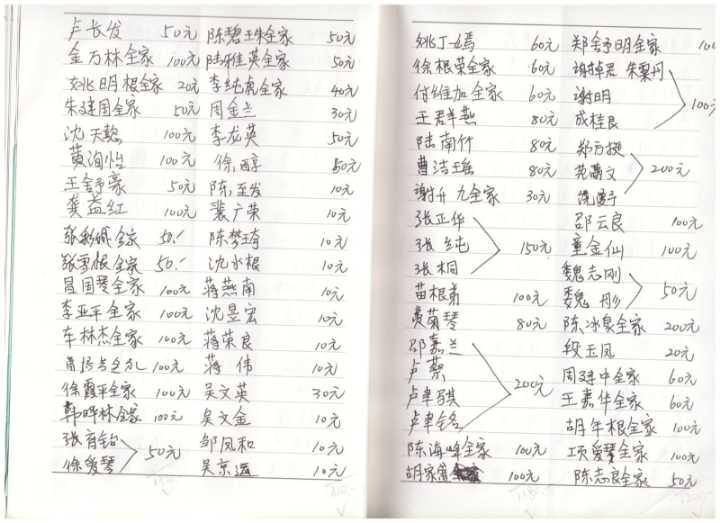 卢长发 50元
金万林全家 100元
姚明根全家 20元
朱建国全家 50元
沈天懿 100元
黄洵怡 100元
王舒豪 50元
龚益红 100元
全家 50.-
全家 50.-
吕国琴全家 100元
李亚平全家 100元
车林杰全家 100元
100元
徐霞平全家 100元
韩晔林全家 100元
张育铭
徐爱琴
50元
陈碧珠全家 50元
陆雅英全家 50元
李纯虎全家 40元
周金兰 30元
李龙英 50元
徐醇 50元
陈至发 10元
裴广荣 10元
陈梦琦 10元
沈水根 10元
蒋燕南 10元
沈昱宏 10元
蒋荣良 10元
蒋伟 10元
吴文英 30元
吴文金 10元
邹凤和 10元
吴京 10元
姚丁嫣 60元
徐根荣全家 60元
付维加全家 60元
王群燕 80元
陆南竹 80元
曹洁瑶 80元
谢升九全家 30元
张正华
张纯
张桐
150元
苗根弟 100元
黄菊琴 80元
邵嘉兰
卢蔡
卢卓骐
卢聿铭
200元
陈海峰全家 100元
胡家 100元
郑舒明全家 100
谢掉君 朱粟丹
谢明
成桂良
100元
郑方挺
苑蕭文
200元
邵云良 100元
童金仙 100元
魏志刚
魏彤
50元
陈冰泉全家 200元
段玉凤 20元
周建中全家 60元
王嘉华全家 60元
胡年根全家 100元
项爱琴全家 100元
陈志良全家 50元